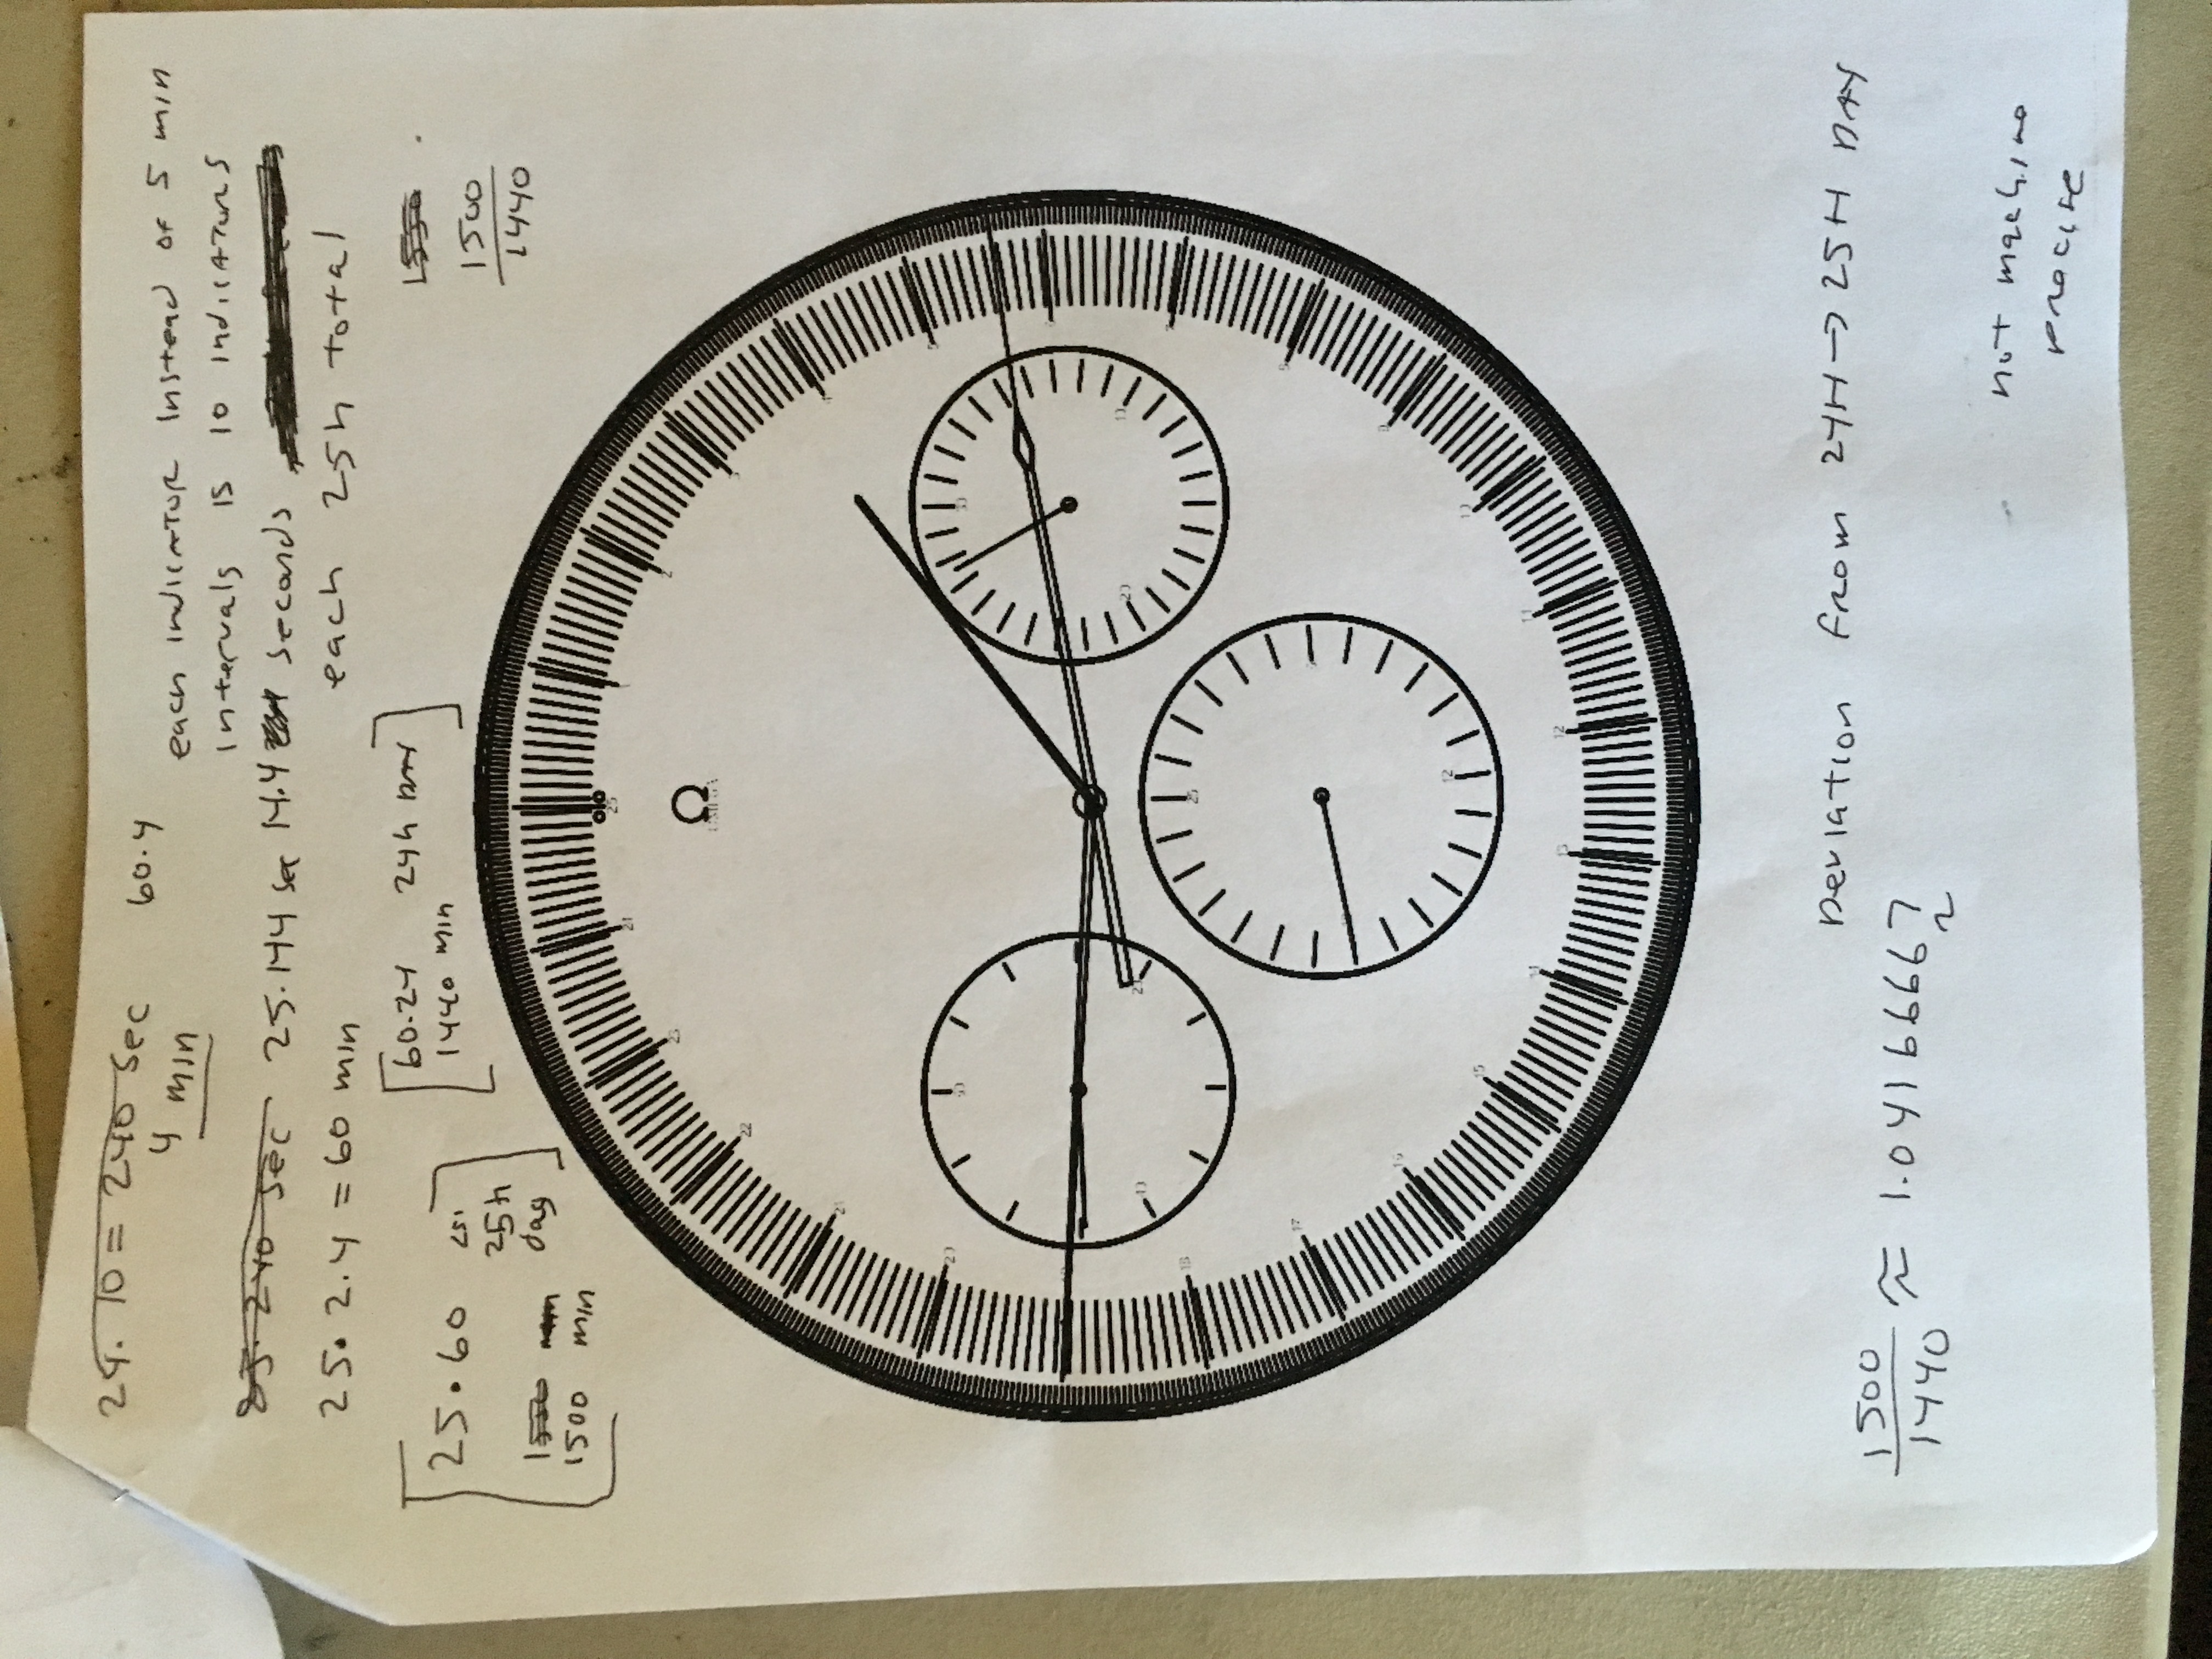 24. 10 = 240 sec
4 min
60.4
each indicator instead of 5 min
intervals is 10 indicators
25.240 sec 25.144 sec 14.4 seconds
25. 2.4 = 60 min
each 25h total
25.60
25h
day
1500 min
60.24 24h DAY
1440 min
1500
1440
25
1
2
3
4
5
8
11
12
13
14
15
16
17
18
20
21
22
23
21
Ω
OMEGA
30
10
20
40
25
12
Deviation from 24H → 25H DAY
1500
1440
≈ 1.04166667
2
not machine
precise